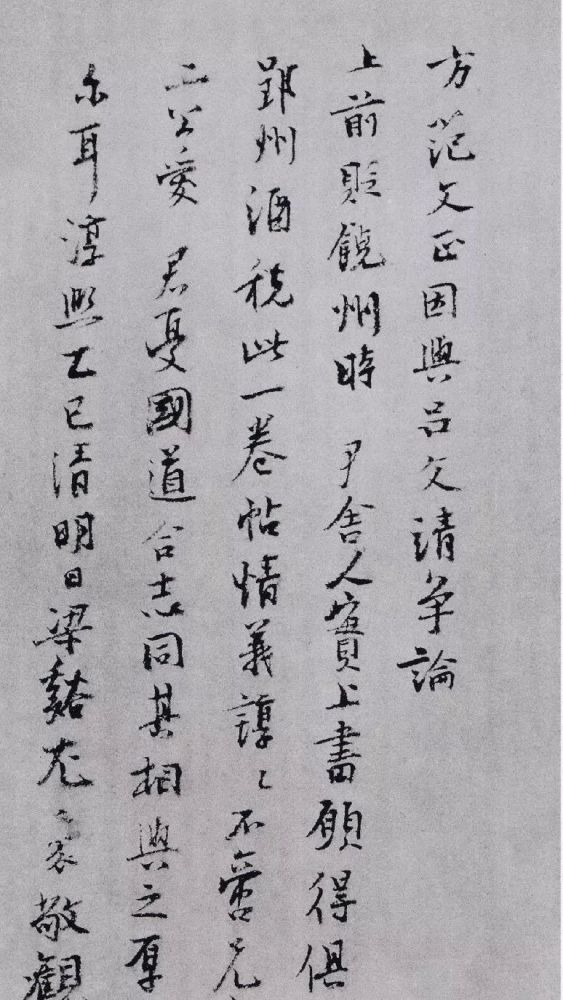 方范文正因與呂文靖争論
上前貶饒州時 尹舍人實上書願得俱
郢州酒稅此一卷帖情義諄〻不啻兄
二公愛 君憂國道合志同其相與之厚
尔耳淳熙乙巳清明日梁谿尤袤敬觀